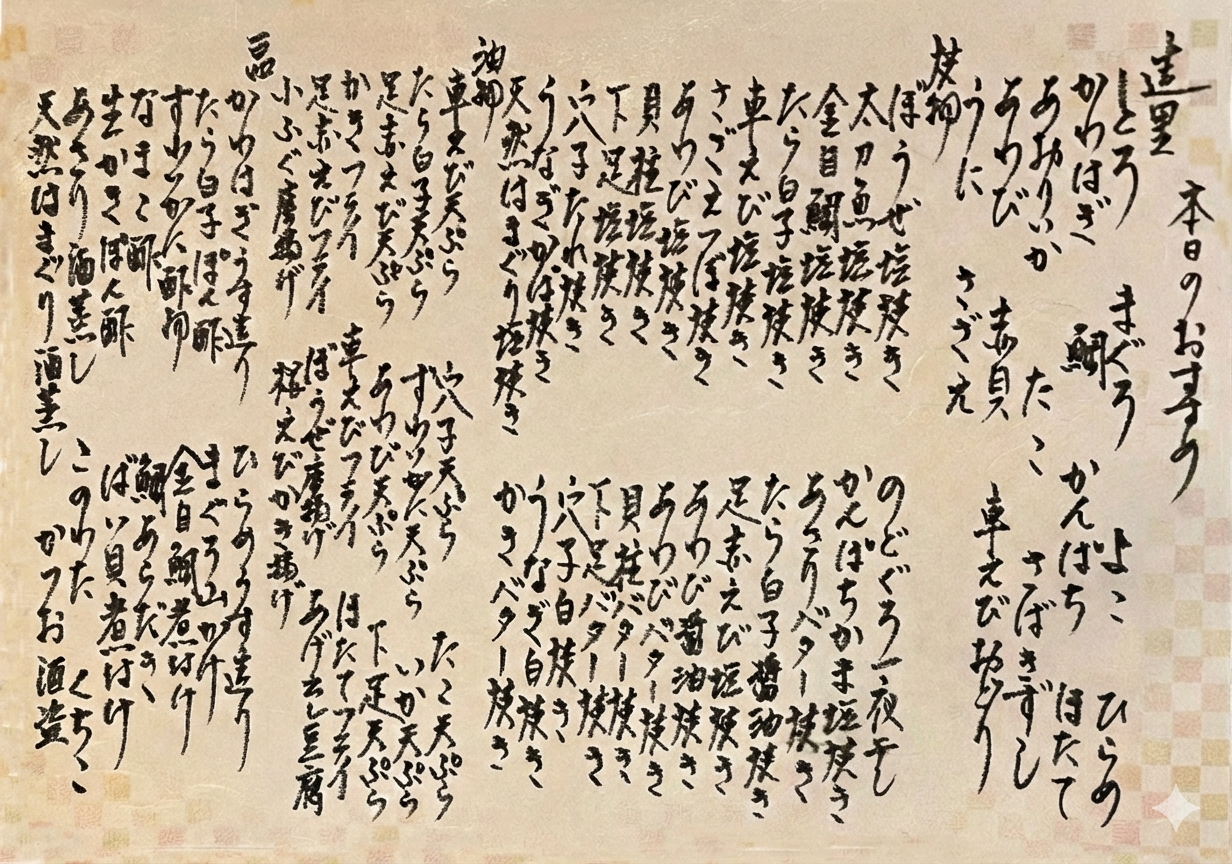 本日のおすすめ
造里
しとろ　まぐろ　よこ　ひらめ
かわはぎ　鯛　かんぱち　ほたて
あおりいか　たこ　さばきずし
あわび　赤貝　車えびおどり
うに　さざえ
焼物
ぼうぜ塩焼き　のどぐろ一夜干し
太刀魚塩焼き　かんぱちかま塩焼き
金目鯛塩焼き　あさりバター焼き
たら白子塩焼き　たら白子醤油焼き
車えび塩焼き　足赤えび塩焼き
さざえつぼ焼き　あわび醤油焼き
あわび塩焼き　あわびバター焼き
貝柱塩焼き　貝柱バター焼き
下足塩焼き　下足バター焼き
穴子たれ焼き　穴子白焼き
うなぎかば焼き　うなぎ白焼き
天然はまぐり塩焼き　かきバター焼き
油物
車えび天ぷら　穴子天ぷら　たこ天ぷら
たら白子天ぷら　ずわいがに天ぷら　いか天ぷら
足赤えび天ぷら　あわび天ぷら　下足天ぷら
かきフライ　車えびフライ　ほたてフライ
足赤えびフライ　ぼうぜ唐揚げ　あげ出し豆腐
小ふぐ唐揚げ　桜えびかき揚げ
かわはぎうす造り　ひらめうす造り
たら白子ぽん酢　まぐろ山かけ
ずわいがに酢物　金目鯛煮付け
なまこ酢　鯛あらだき
生かきぽん酢　ばい貝煮付け
あさり酒蒸し　このわた　くちこ
天然はまぐり酒蒸し　かつお酒盗